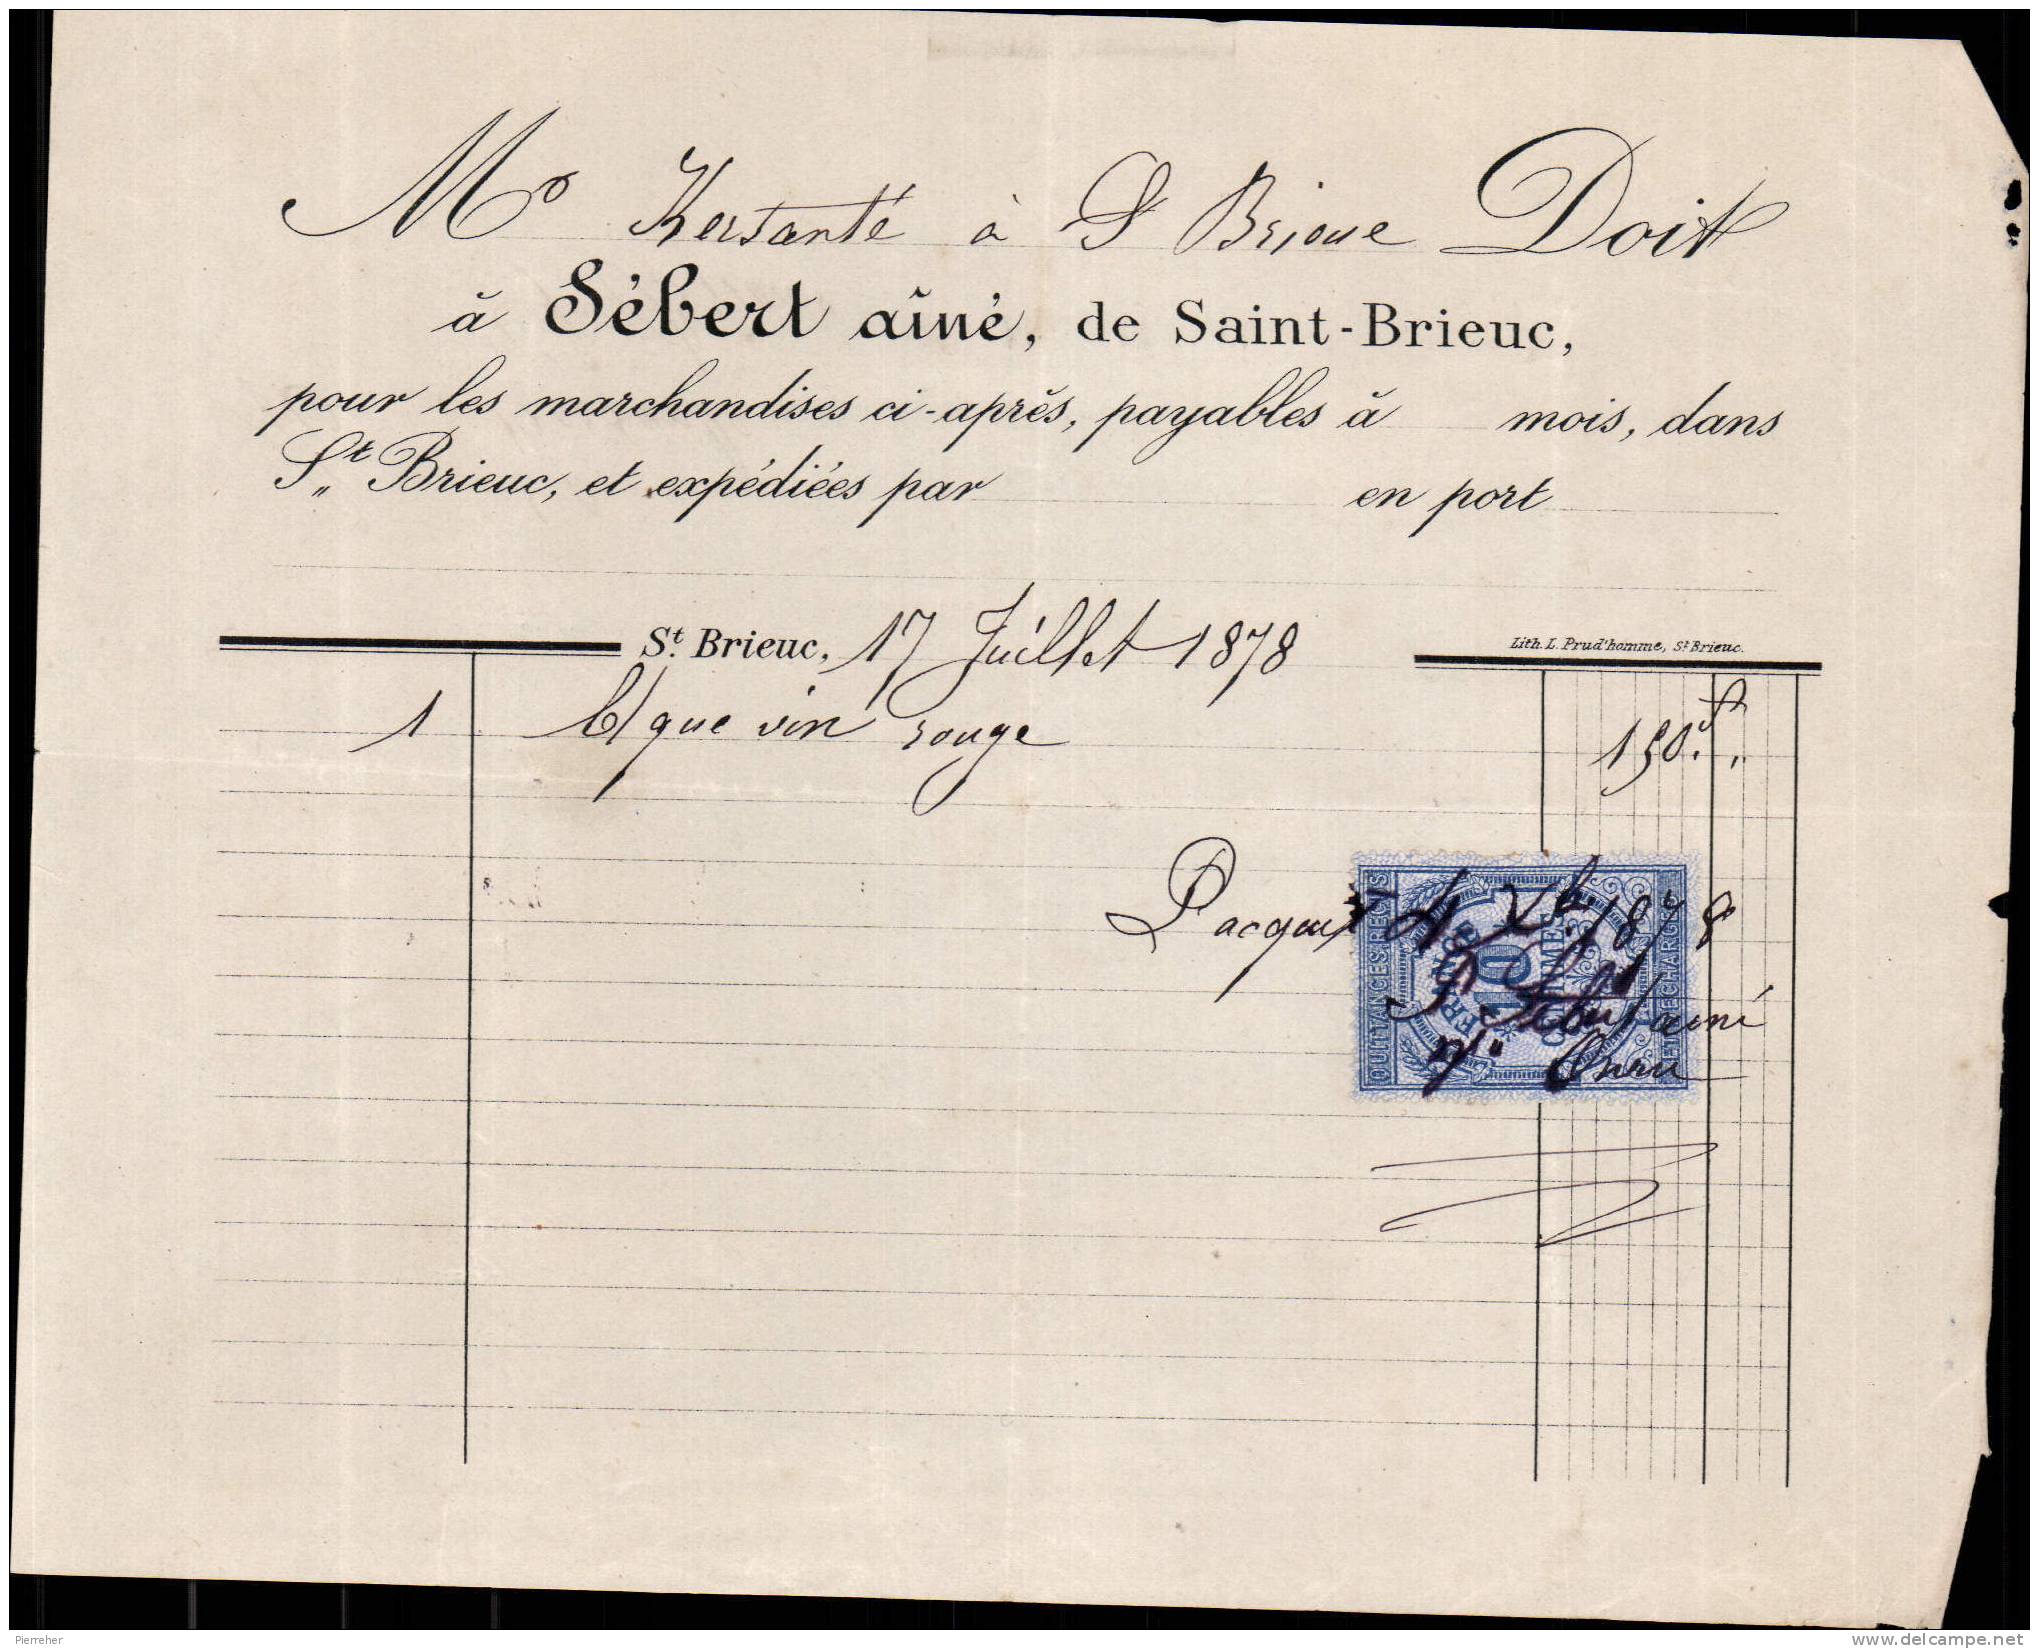 Mo Kersanté à St Brieuc Doit
à Sébert aîné, de Saint-Brieuc,
pour les marchandises ci-après, payables à mois, dans
St Brieuc, et expédiées par en port
St. Brieuc, 17 Juillet 1878
Lith. L. Prud'homme, St Brieuc.
1 B/que vin rouge 150f.
Pr acquit 1878
QUITTANCES, REÇUS
10
CENTIMES
ET DÉCHARGES
Sébert ainé
Pierreher
www.delcampe.net